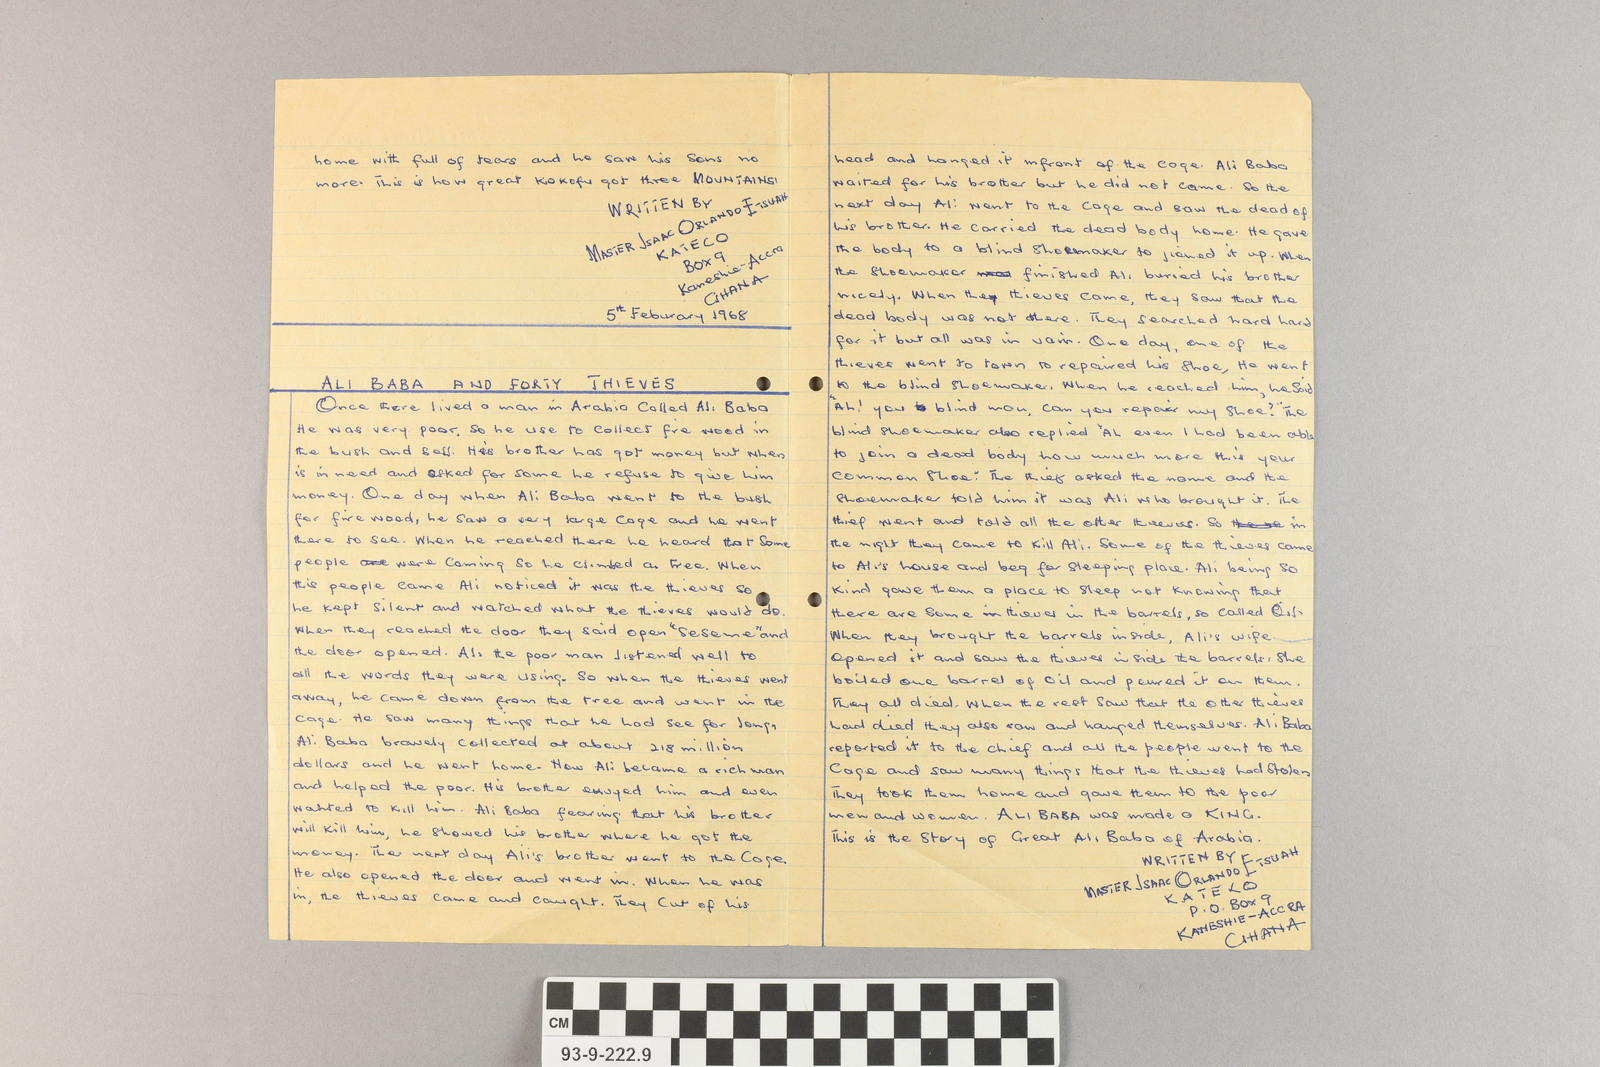 home with full of tears and he saw his sons no
more. This is how great KOKOFU got three MOUNTAINS!
WRITTEN BY
MASTER ISAAC ORLANDO ETSUAH
KATECO
BOX 9
Kaneshie-Accra
GHANA
5th Feburary 1968
ALI BABA AND FORTY THIEVES
Once there lived a man in Arabia Called Ali Baba
He was very poor. So he use to collect fire wood in
the bush and sell. His brother has got money but when
is in need and asked for some he refuse to give him
money. One day when Ali Baba went to the bush
for fire wood, he saw a very large Cage and he went
there to see. When he reached there he heard that Some
people were Coming So he climbed a Tree. When
this people came Ali noticed it was the thieves so
he kept Silent and watched what the thieves would do.
When they reached the door they said open "Seseme" and
the door opened. Ali the poor man listened well to
all the words they were using. So when the thieves went
away, he came down from the tree and went in the
Cage. He saw many things that he had see for long,
Ali Baba bravely Collected at about 218 million
dollars and he went home. Now Ali became a rich man
and helped the poor. His brother envyed him and even
wanted to kill him. Ali Baba fearing that his brother
will kill him, he showed his brother where he got the
money. The next day Ali's brother went to the Cage.
He also opened the door and went in. When he was
in, the thieves came and caught. They Cut of his
head and hanged it infront of the Cage. Ali Baba
waited for his brother but he did not came. So the
next day Ali went to the Cage and saw the dead of
his brother. He carried the dead body home. He gave
the body to a blind Shoemaker to jioned it up. When
the Shoemaker finished Ali buried his brother
nicely. When the thieves came, they saw that the
dead body was not there. They searched hard hard
for it but all was in vain. One day, one of the
thieves went to town to repaired his Shoe, He went
to the blind Shoemaker. When he reached him, he Said
"Ah! you blind man, Can you repair my Shoe?" The
blind Shoemaker also replied "Ah even I had been able
to join a dead body how much more this your
Common Shoe." The thief asked the name and the
Shoemaker told him it was Ali who brought it. The
thief went and told all the other thieves. So in
the night they came to kill Ali. Some of the thieves came
to Ali's house and beg for sleeping place. Ali being So
kind gave them a place to sleep not knowing that
there are Some in thieves in the barrels, so called Oil.
When they brought the barrels inside, Ali's wife
opened it and saw the thieves inside the barrels. She
boiled one barrel of Oil and poured it on them.
They all died. When the rest saw that the other thieves
had died they also ran and hanged themselves. Ali Baba
reported it to the chief and all the people went to the
Cage and saw many things that the thieves had Stolen
They took them home and gave them to the poor
men and women. ALI BABA was made a KING.
This is the Story of Great Ali Baba of Arabia.
WRITTEN BY
MASTER ISAAC ORLANDO ETSUAH
KATECO
P.O. BOX 9
KANESHIE-ACCRA
GHANA
CM
93-9-222.9